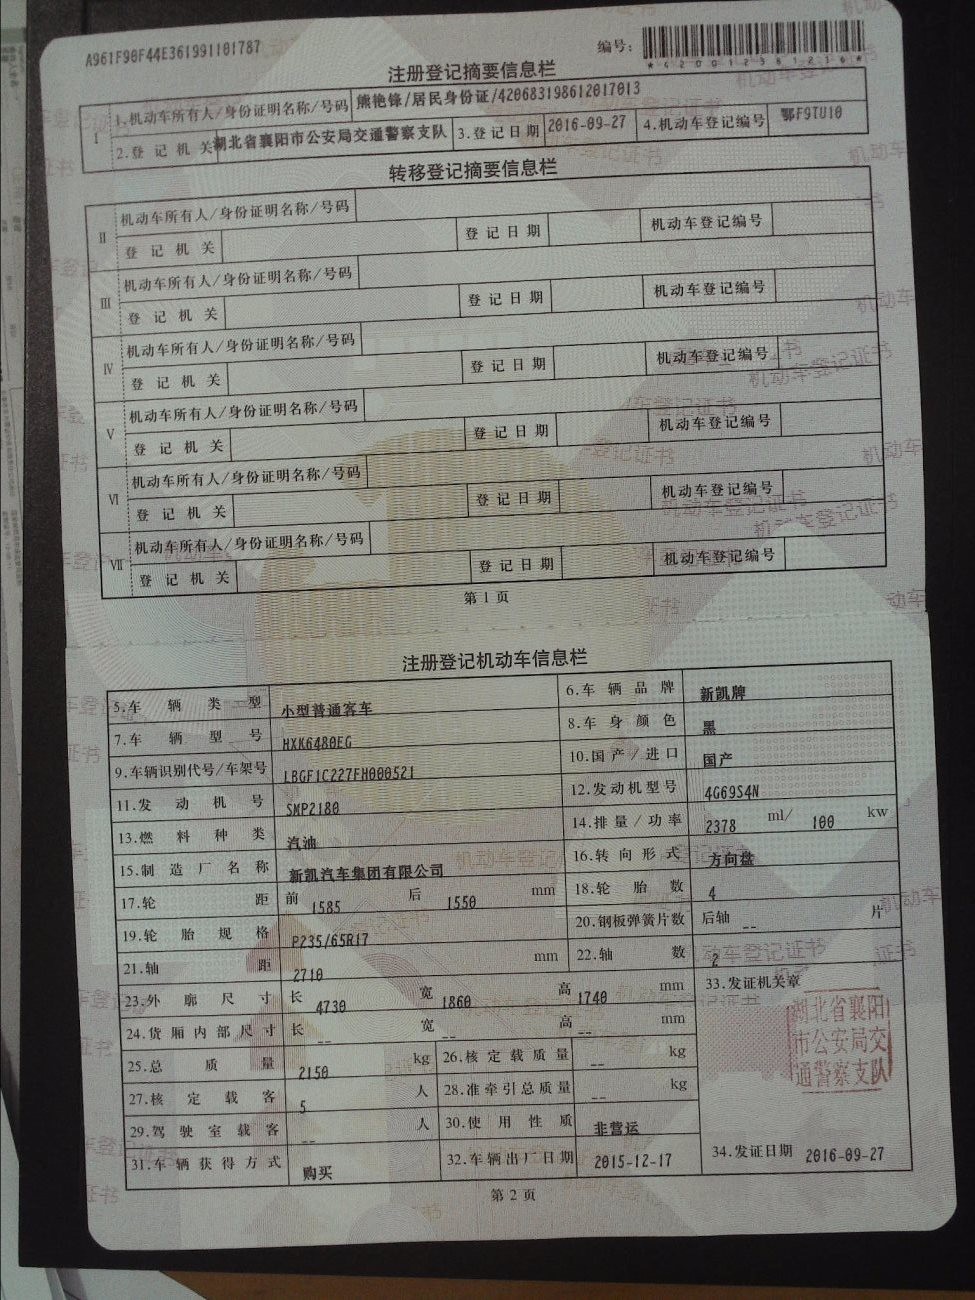 A961F90F44E361991101787
编号:
*420012381236*
注册登记摘要信息栏
I 1.机动车所有人/身份证明名称/号码 熊艳锋/居民身份证/420683198612017013
2.登记机关 湖北省襄阳市公安局交通警察支队 3.登记日期 2016-09-27 4.机动车登记编号 鄂F9TU10
转移登记摘要信息栏
II 机动车所有人/身份证明名称/号码
登记机关 登记日期 机动车登记编号
III 机动车所有人/身份证明名称/号码
登记机关 登记日期 机动车登记编号
IV 机动车所有人/身份证明名称/号码
登记机关 登记日期 机动车登记编号
V 机动车所有人/身份证明名称/号码
登记机关 登记日期 机动车登记编号
VI 机动车所有人/身份证明名称/号码
登记机关 登记日期 机动车登记编号
VII 机动车所有人/身份证明名称/号码
登记机关 登记日期 机动车登记编号
第1页
注册登记机动车信息栏
5.车辆类型 小型普通客车 6.车辆品牌 新凯牌
7.车辆型号 HXK6480EG 8.车身颜色 黑
9.车辆识别代号/车架号 LBGF1C227FH000521 10.国产/进口 国产
11.发动机号 SMP2180 12.发动机型号 4G69S4N
13.燃料种类 汽油 14.排量/功率 2378 ml/ 100 kw
15.制造厂名称 新凯汽车集团有限公司 16.转向形式 方向盘
17.轮距 前 1585 后 1550 mm 18.轮胎数 4
19.轮胎规格 P235/65R17 20.钢板弹簧片数 后轴 -- 片
21.轴距 2710 mm 22.轴数 2
23.外廓尺寸 长 4730 宽 1860 高 1740 mm 33.发证机关章
24.货厢内部尺寸 长 -- 宽 -- 高 -- mm
湖北省襄阳
市公安局交
通警察支队
25.总质量 2150 kg 26.核定载质量 -- kg
27.核定载客 5 人 28.准牵引总质量 -- kg
29.驾驶室载客 -- 人 30.使用性质 非营运
31.车辆获得方式 购买 32.车辆出厂日期 2015-12-17 34.发证日期 2016-09-27
第2页